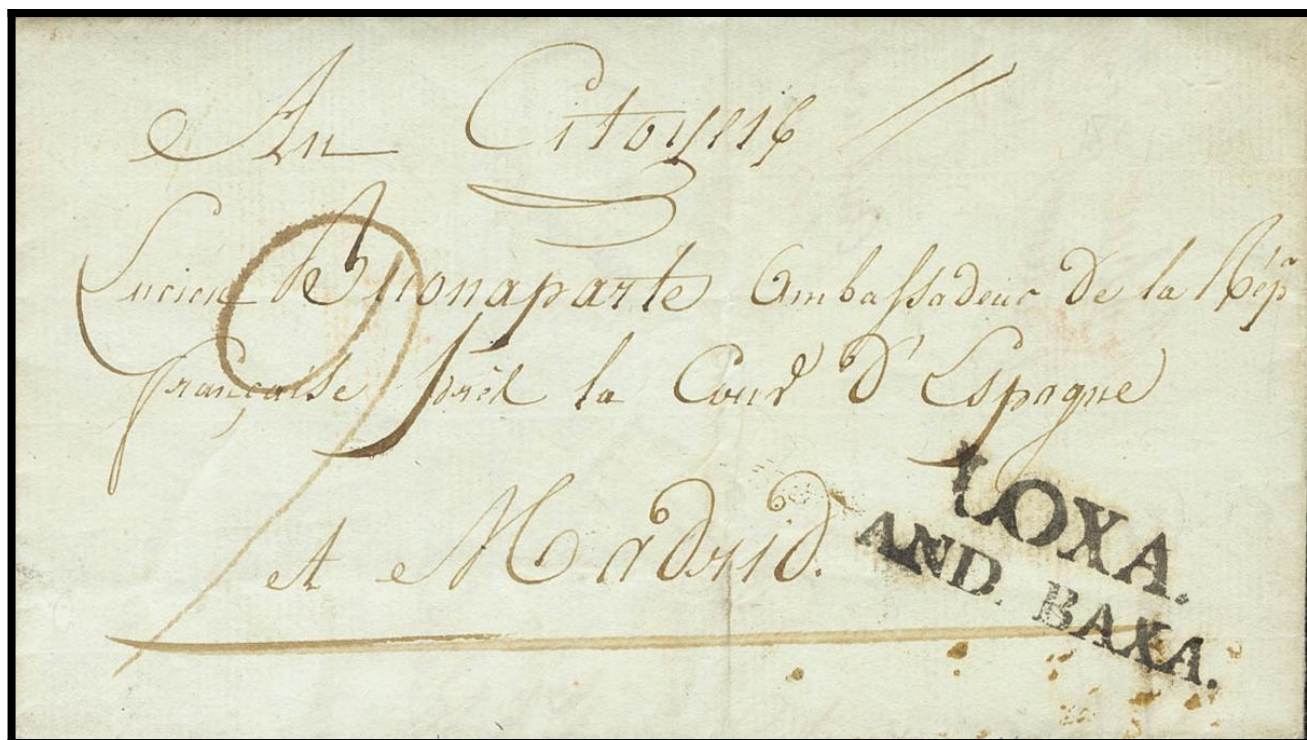 Au Citoyen
Lucien Buonaparte Ambassadeur de la Rép
française près la Cour d'Espagne
et Madrid.
LOXA.
AND. BAXA.